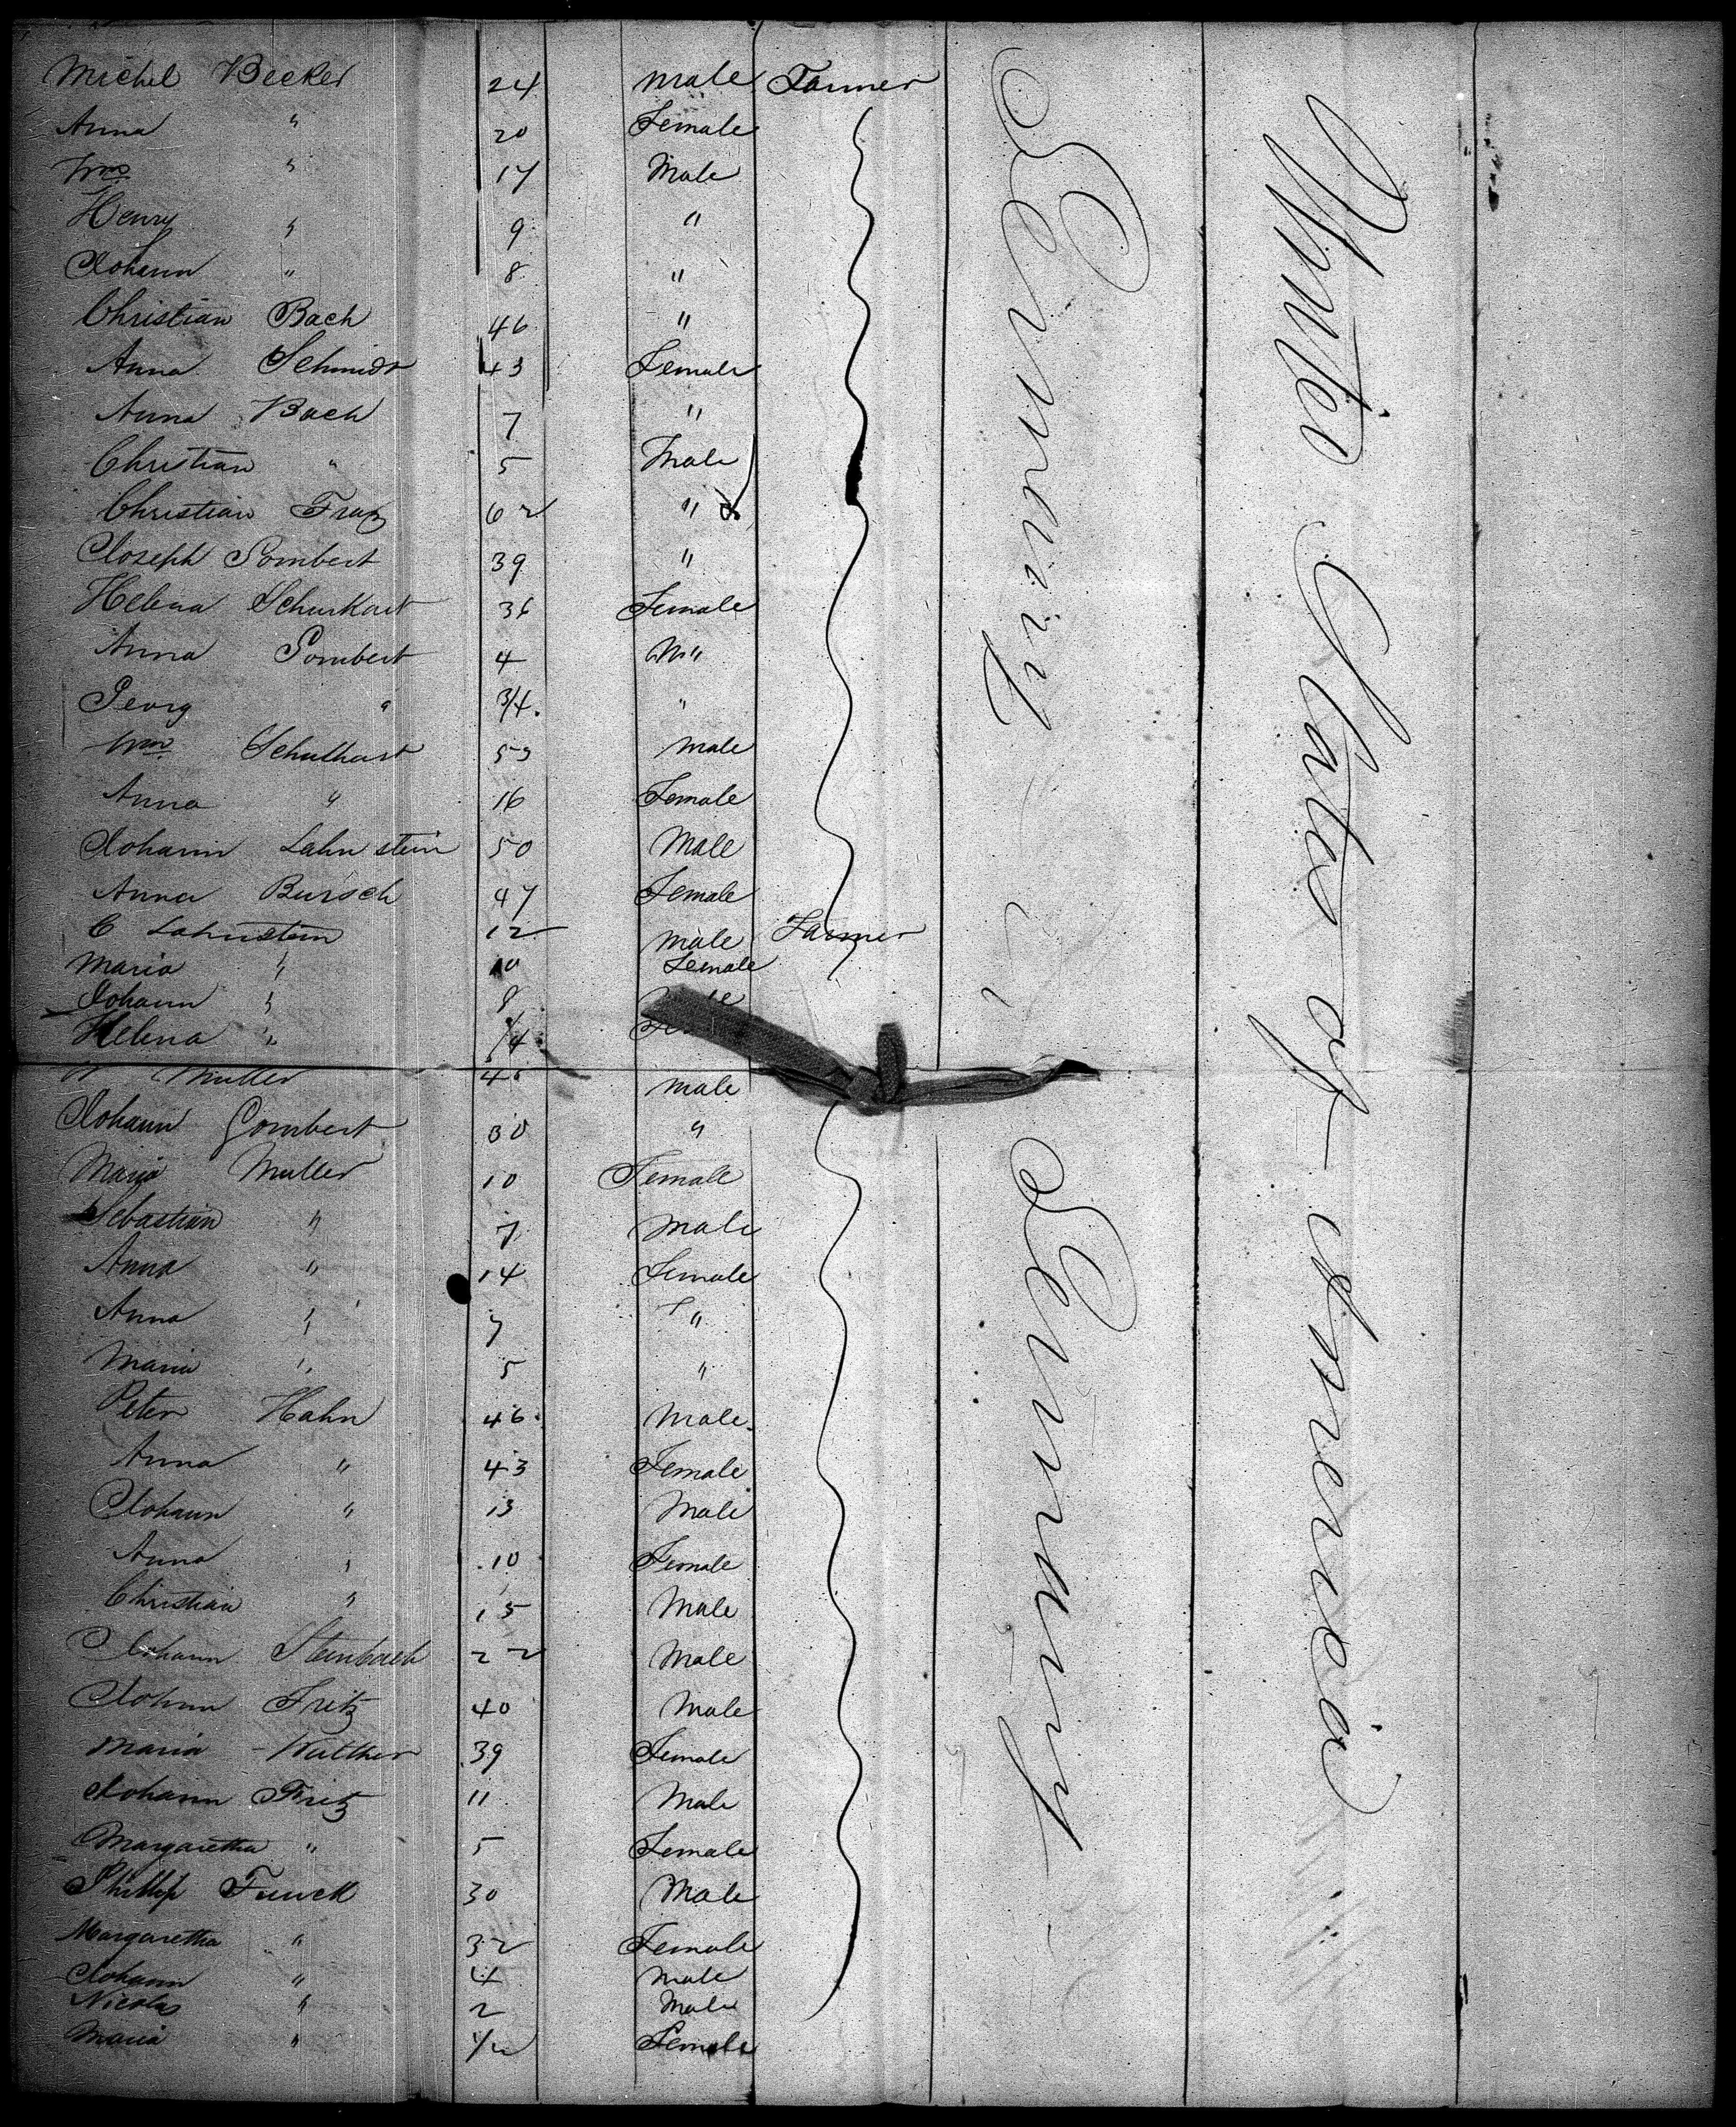 Michel Becker 24 Male Farmer
Anna " 20 Female
Wm " 17 Male
Henry " 9 "
Johann " 8 "
Christian Bach 46 "
Anna Schmidt 43 Female
Anna Bach 7 "
Christian " 5 Male
Christian Fratz 62 "
Joseph Gombert 39 "
Helena 36 Female
Anna Gombert 4 "
Georg " 3/4 "
Wm 53 Male
Anna " 16 Female
Johann Lahnstein 50 Male
Anna Bursch 47 Female
C Lahnstein 12 Male Farmer
Maria " 10 Female
Johann " 8
Helena " 1/4
Muller Male
Johann Gombert 30 "
Maria Muller 10 Female
Sebastian " 7 Male
Anna " 14 Female
Anna " 7 "
Maria " 5 "
Peter Hahn 46 Male
Anna " 43 Female
Johann " 13 Male
Anna " 10 Female
Christian " 15 Male
Johann Steinbach 22 Male
Johann Fritz 40 Male
Maria Walther 39 Female
Johann Fritz 11 Male
Margaretha " 5 Female
Phillip Funck 30 Male
Margaretha " 32 Female
Johann " 4 Male
Nicolas " 2 Male
Maria " 1/2 Female
Germany
Germany
United States of America